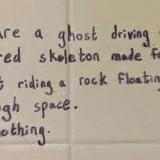 are a ghost driving
red skeleton made fo
riding a rock floatin
gh space.
othing.